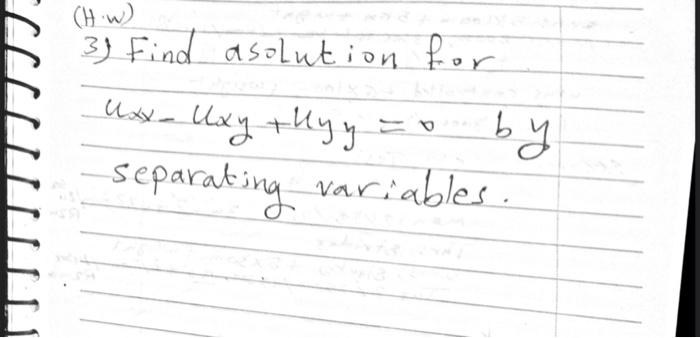 (H.w)
3) Find asolution for
uxx - uxy + uyy = 0 by
separating variables.